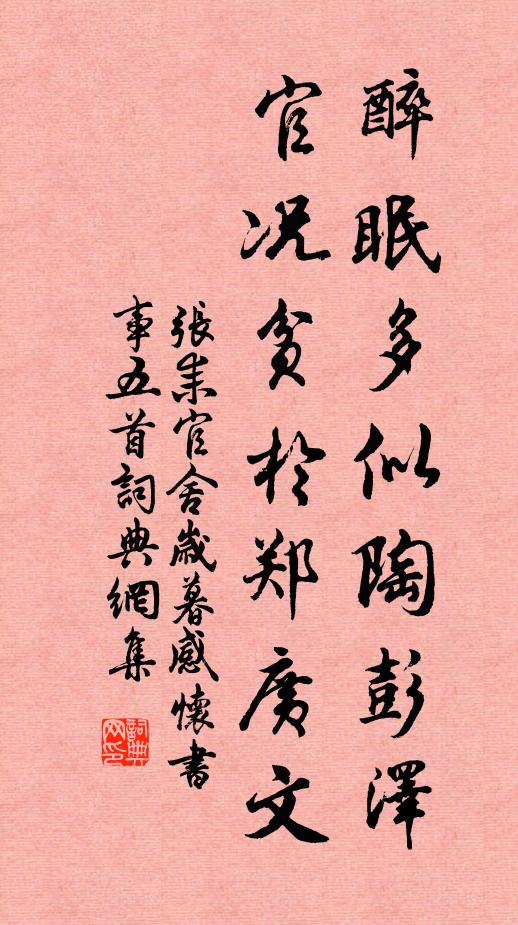 醉眠多似陶彭澤
官况貧於郑廣文
張耒官舍歲暮感懷書
事五首詞典網集
詞典
网印